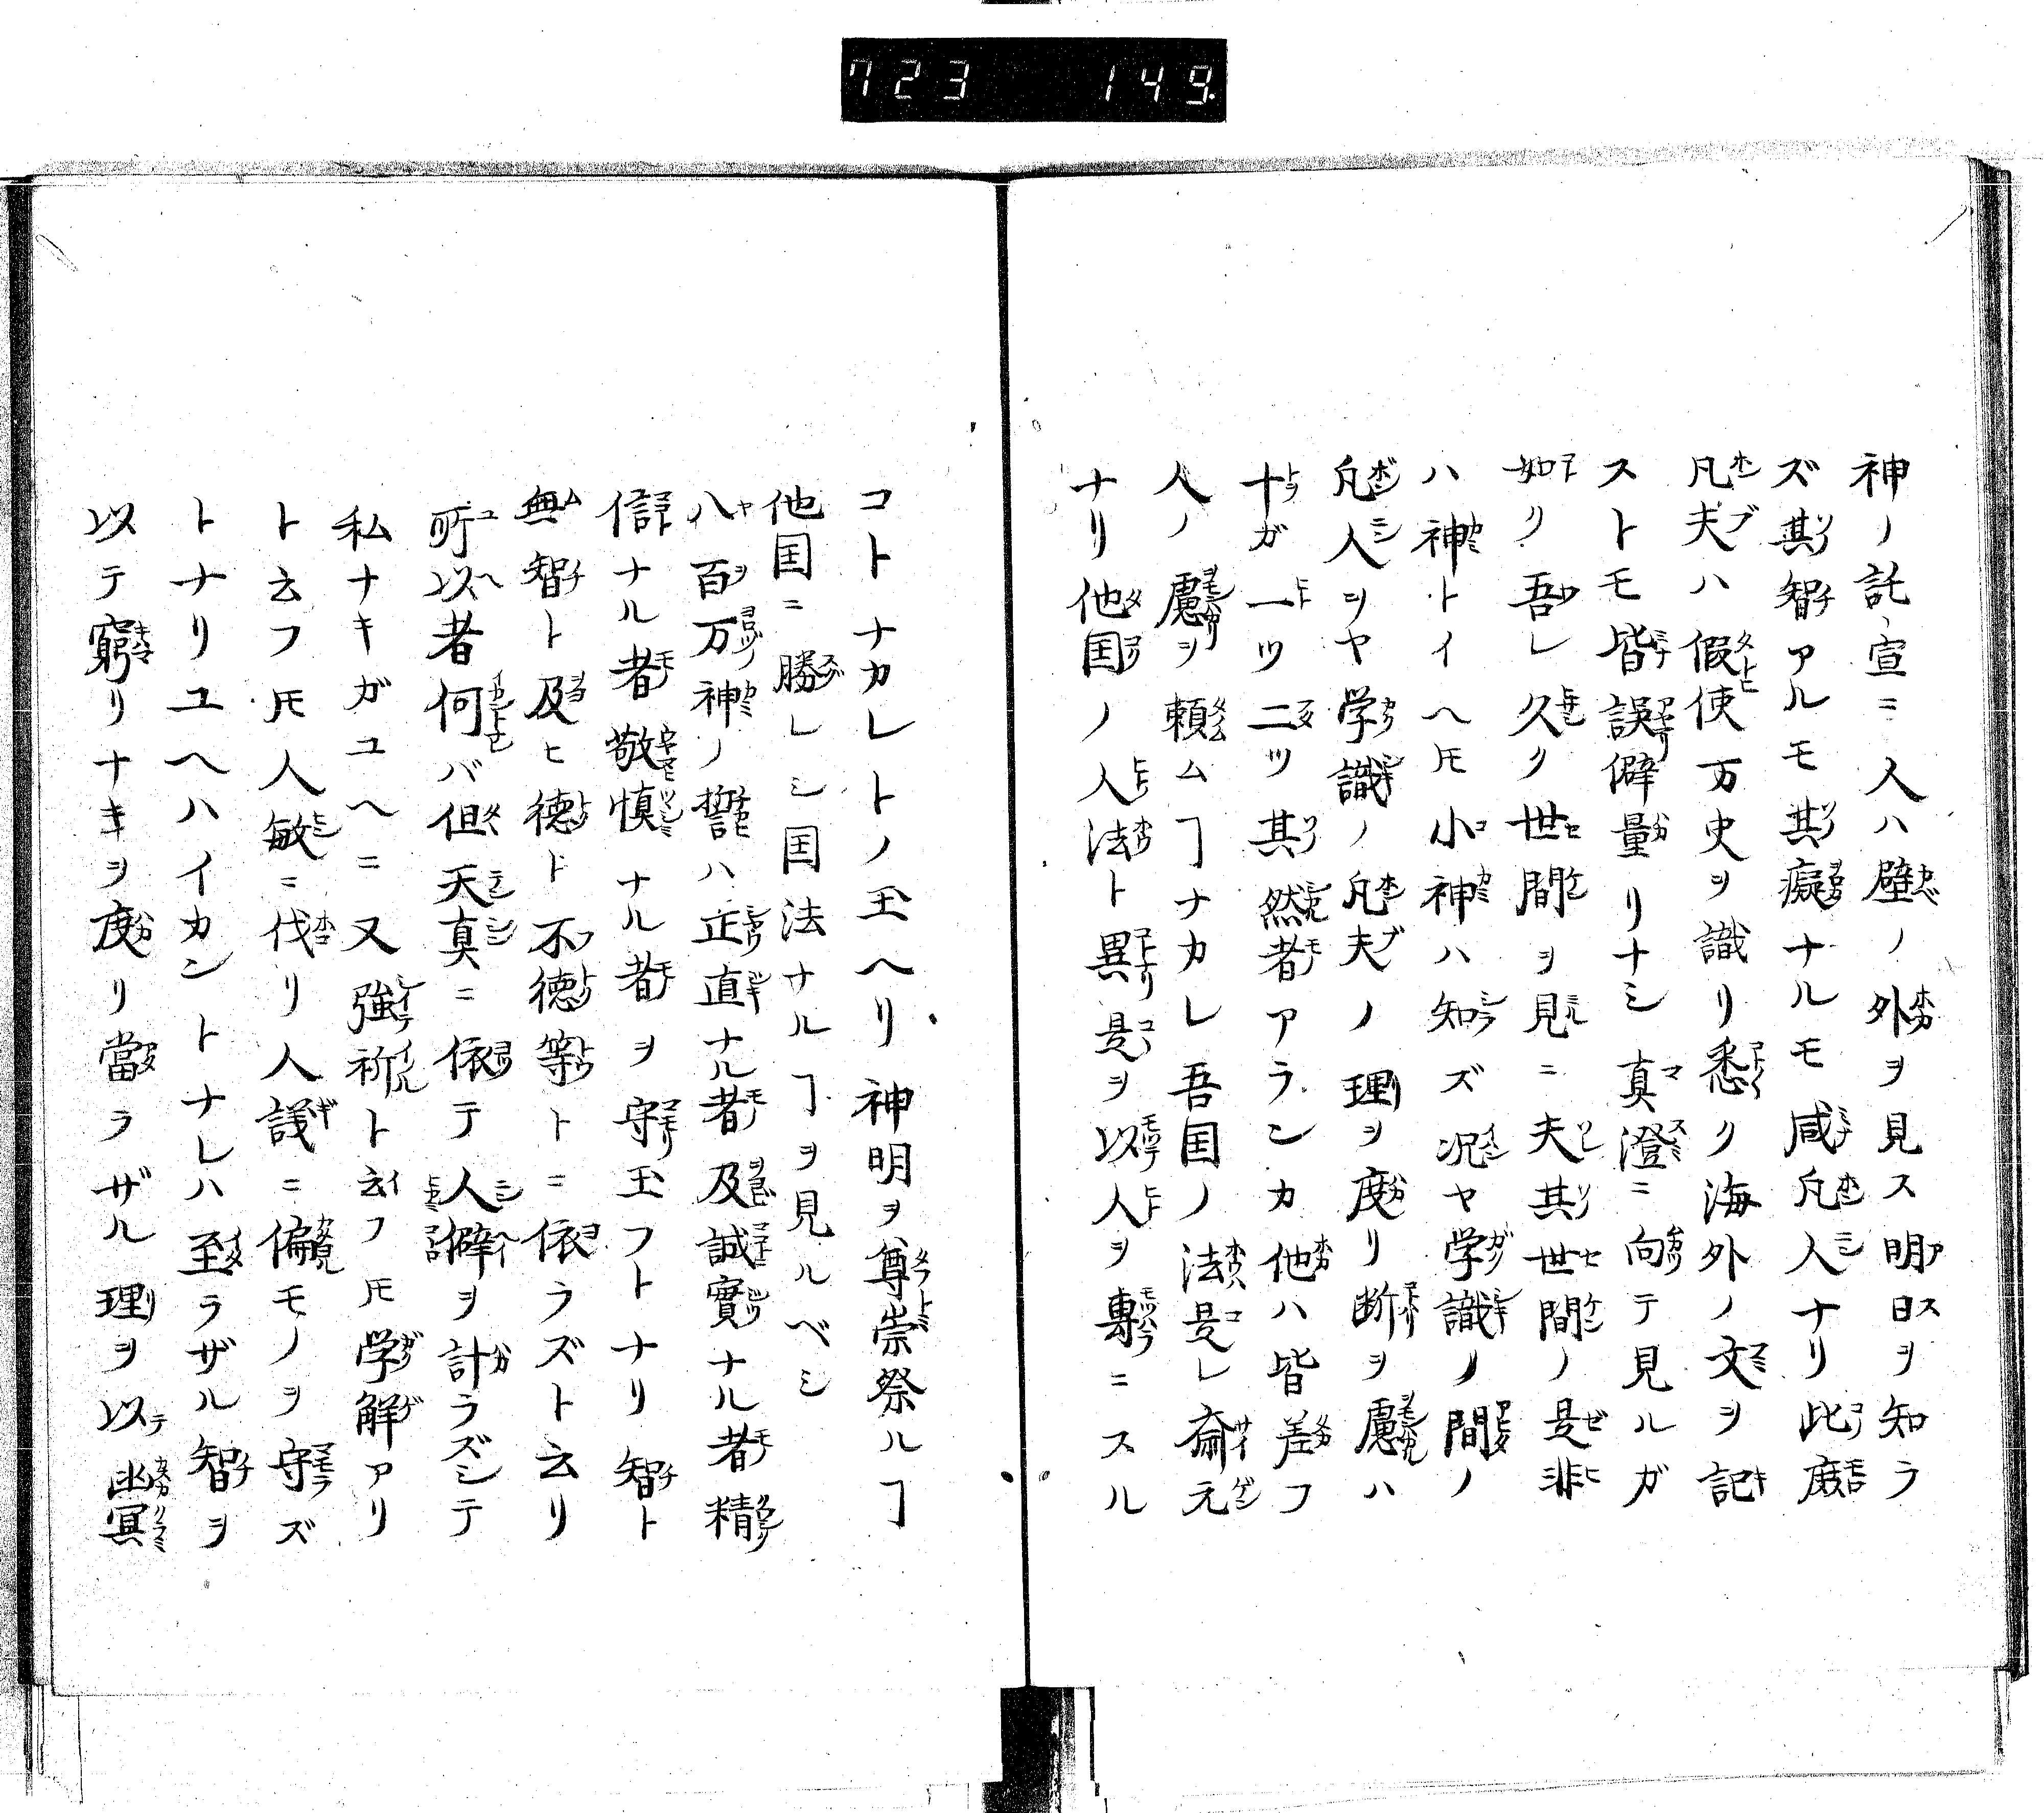 723 149.
神ノ託宣ニ人ハ壁ノ外ヲ見ス明日ヲ知ラ
ズ其智アルモ其癡ナルモ咸凡人ナリ此庶
凡夫ハ假使万史ヲ識リ悉ク海外ノ文ヲ記
ストモ皆誤僻量リナシ真澄ニ向テ見ルガ
如ク吾レ久ク世間ヲ見ニ夫其世間ノ是非
ハ神トイヘ𪜈小神ハ知ズ况ヤ学識ノ間ノ
凡人ヲヤ学識ノ凡夫ノ理ヲ度リ断ヲ慮ハ
十ガ一ツ二ツ其然者アランカ他ハ皆差フ
人ノ慮ヲ頼ムヿナカレ吾国ノ法是レ斎元
ナリ他国ノ人法ト異是ヲ以人ヲ專ニスル
コトナカレトノ玉ヘリ神明ヲ尊崇祭ルヿ
他国ニ勝レシ国法ナルヿヲ見ルベシ
八百万神ノ誓ハ正直ナル者及誠實ナル者精
信ナル者敬慎ナル者ヲ守玉フトナリ智ト
無智ト及ヒ徳ト不徳等トニ依ラズト云リ
所以者何バ但天真ニ依テ人僻ヲ計ラズシテ
私ナキガユヘニ又強祈ト云フ𪜈学解アリ
ト云フ𪜈人敏ニ伐リ人議ニ偏モノヲ守ズ
トナリユヘハイカントナレハ至ラザル智ヲ
以テ窮リナキヲ度リ當ラザル理ヲ以幽冥